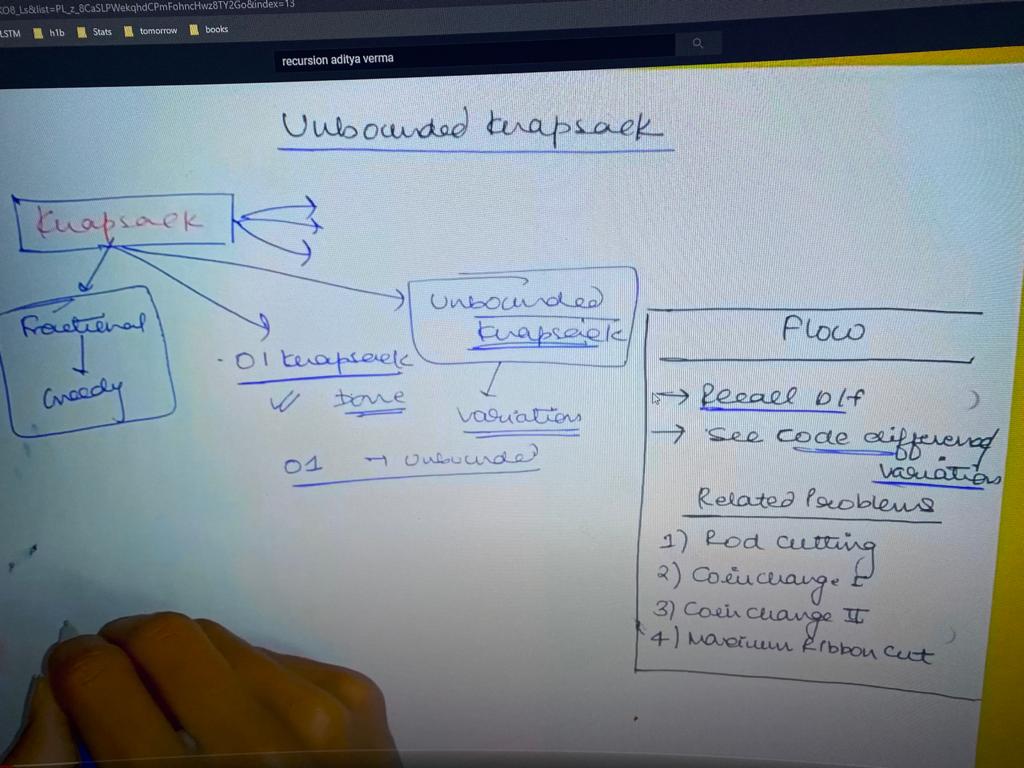 O8_Ls&list=PL_z_8CaSLPWekqhdCPmFohncHwz8TY2Go&index=13
LSTM h1b Stats tomorrow books
recursion aditya verma
Unbounded Knapsack
Knapsack
Fractional
Greedy
01 Knapsack
done
Unbounded
Knapsack
variation
01 → Unbounded
Flow
→ Recall b/f
→ See code difference/
variation
Related Problems
1) Rod cutting
2) Coin change I
3) Coin change II
4) Maximum Ribbon cut